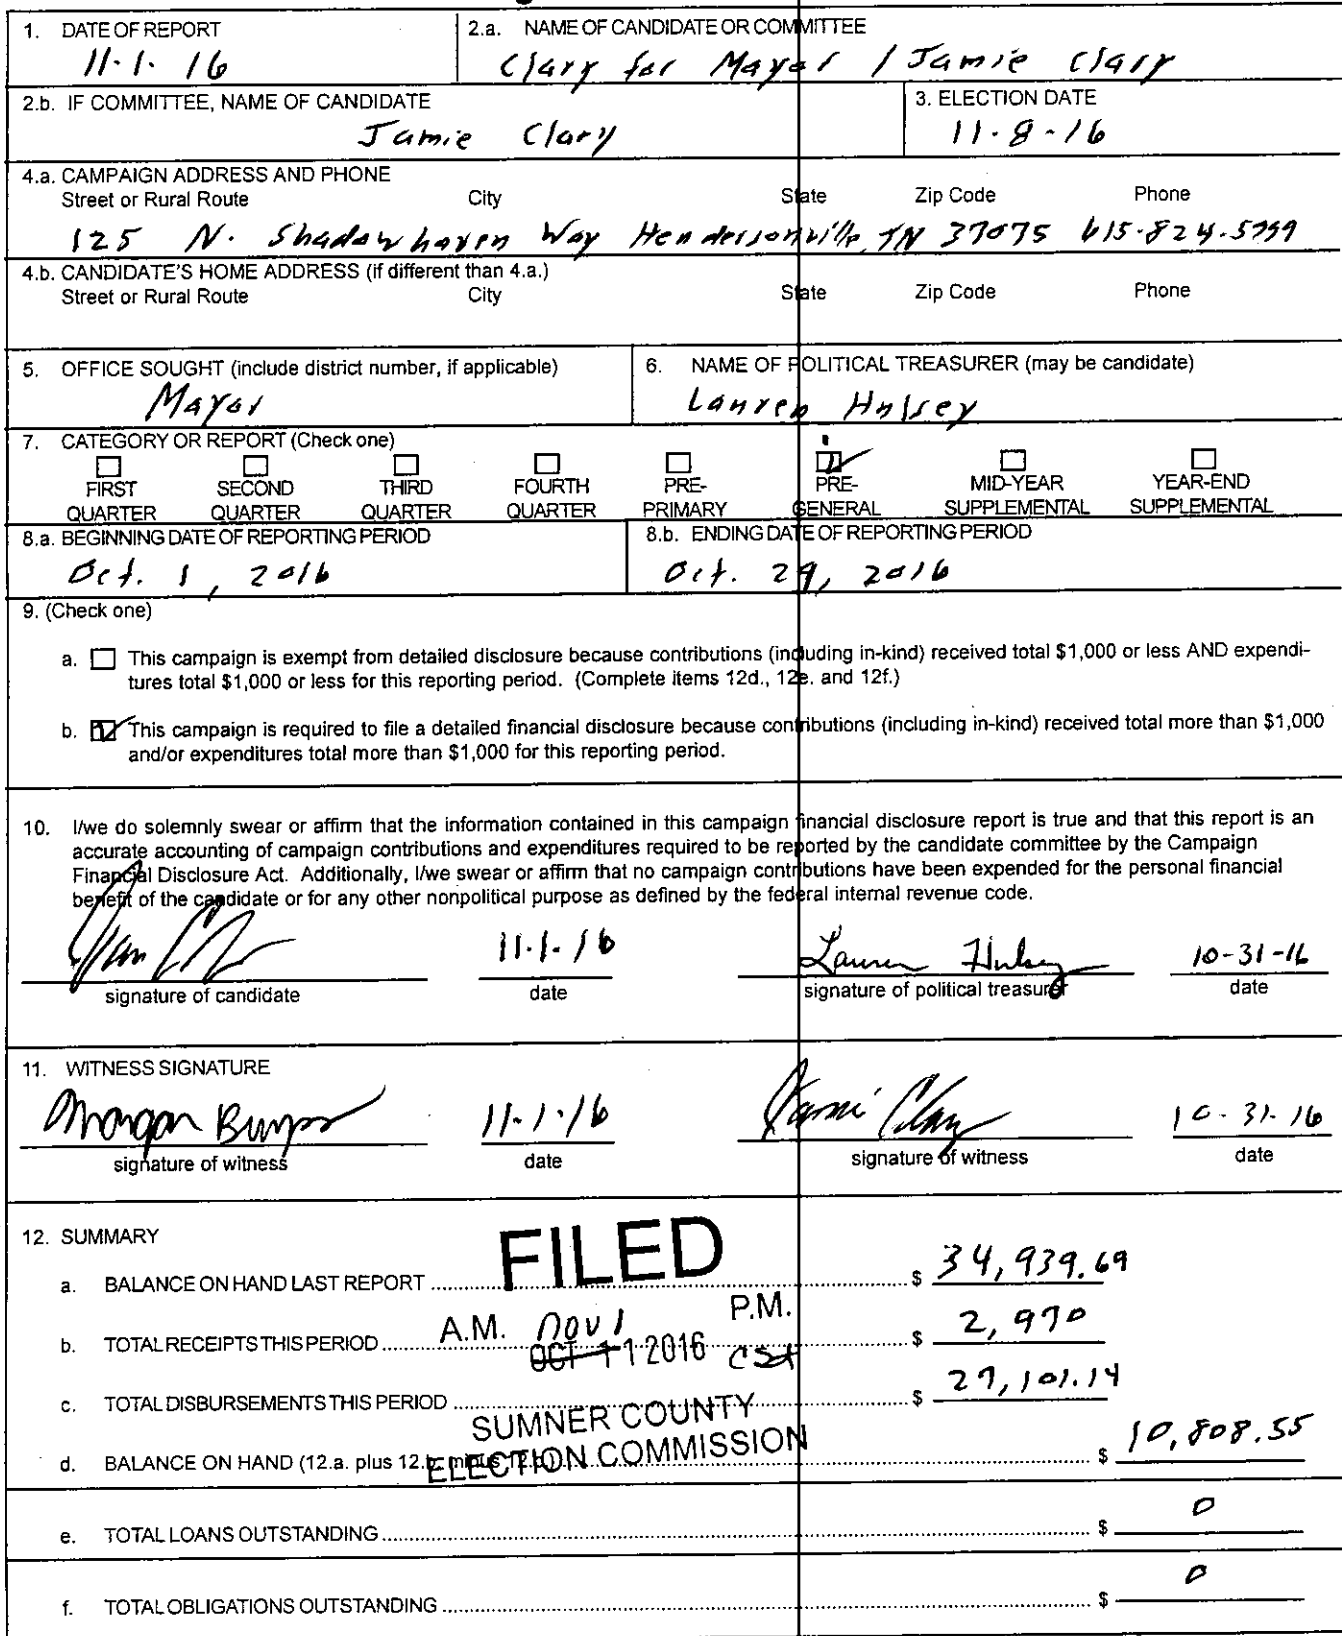 1. DATE OF REPORT
11·1·16
2.a. NAME OF CANDIDATE OR COMMITTEE
Clary for Mayor / Jamie Clary
2.b. IF COMMITTEE, NAME OF CANDIDATE
Jamie Clary
3. ELECTION DATE
11·8·16
4.a. CAMPAIGN ADDRESS AND PHONE
Street or Rural Route City State Zip Code Phone
125 N. Shadowhaven Way Hendersonville, TN 37075 615·824·5759
4.b. CANDIDATE'S HOME ADDRESS (if different than 4.a.)
Street or Rural Route City State Zip Code Phone
5. OFFICE SOUGHT (include district number, if applicable)
Mayor
6. NAME OF POLITICAL TREASURER (may be candidate)
Lauren Hulsey
7. CATEGORY OR REPORT (Check one)
FIRST SECOND THIRD FOURTH PRE- PRE- MID-YEAR YEAR-END
QUARTER QUARTER QUARTER QUARTER PRIMARY GENERAL SUPPLEMENTAL SUPPLEMENTAL
8.a. BEGINNING DATE OF REPORTING PERIOD
Oct. 1, 2016
8.b. ENDING DATE OF REPORTING PERIOD
Oct. 29, 2016
9. (Check one)
a. This campaign is exempt from detailed disclosure because contributions (including in-kind) received total $1,000 or less AND expendi-
tures total $1,000 or less for this reporting period. (Complete items 12d., 12e. and 12f.)
b. This campaign is required to file a detailed financial disclosure because contributions (including in-kind) received total more than $1,000
and/or expenditures total more than $1,000 for this reporting period.
10. I/we do solemnly swear or affirm that the information contained in this campaign financial disclosure report is true and that this report is an
accurate accounting of campaign contributions and expenditures required to be reported by the candidate committee by the Campaign
Financial Disclosure Act. Additionally, I/we swear or affirm that no campaign contributions have been expended for the personal financial
benefit of the candidate or for any other nonpolitical purpose as defined by the federal internal revenue code.
11·1·16 Lauren Hulsey 10-31-16
signature of candidate date signature of political treasurer date
11. WITNESS SIGNATURE
Morgan 11·1·16 Jamie Clary 10·31·16
signature of witness date signature of witness date
12. SUMMARY
FILED
a. BALANCE ON HAND LAST REPORT $ 34,939.69
A.M. Nov 1 P.M.
b. TOTAL RECEIPTS THIS PERIOD $ 2,970
OCT 11 2016 CST
c. TOTAL DISBURSEMENTS THIS PERIOD $ 27,101.14
SUMNER COUNTY
ELECTION COMMISSION
d. BALANCE ON HAND (12.a. plus 12.b. minus 12.c.) $ 10,808.55
e. TOTAL LOANS OUTSTANDING $ 0
f. TOTAL OBLIGATIONS OUTSTANDING $ 0